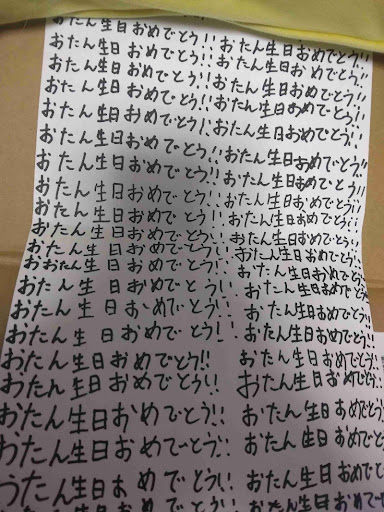 おたん生日おめでとう!!おたん生日おめでとう!!
おたん生日おめでとう!!おたん生日おめでとう!!
おたん生日おめでとう!!おたん生日おめでとう!!
おたん生日おめでとう!!おたん生日おめでとう!!
おたん生日おめでとう!!おたん生日おめでとう!!
おたん生日おめでとう!!おたん生日おめでとう!!
おたん生日おめでとう!!おたん生日おめでとう!!
おたん生日おめでとう!!おたん生日おめでとう!!
おたん生日おめでとう!!おたん生日おめでとう!!
おたん生日おめでとう!!おたん生日おめでとう!!
おたん生日おめでとう!!おたん生日おめでとう!!
おおたん生日おめでとう!!おたん生日おめでとう!!
おたん生日おめでとう!!おたん生日おめでとう!!
おたん生日おめでとう!!おたん生日おめでとう!!
おたん生日おめでとう!!おたん生日おめでとう!!
おたん生日おめでとう!!おたん生日おめでとう!!
おたん生日おめでとう!!おたん生日おめでとう!!
おたん生日おめでとう!!おたん生日おめでとう
おたん生日おめでとう!!おたん生日おめでとう
おたん生日おめでとう!!おたん生日おめでとう